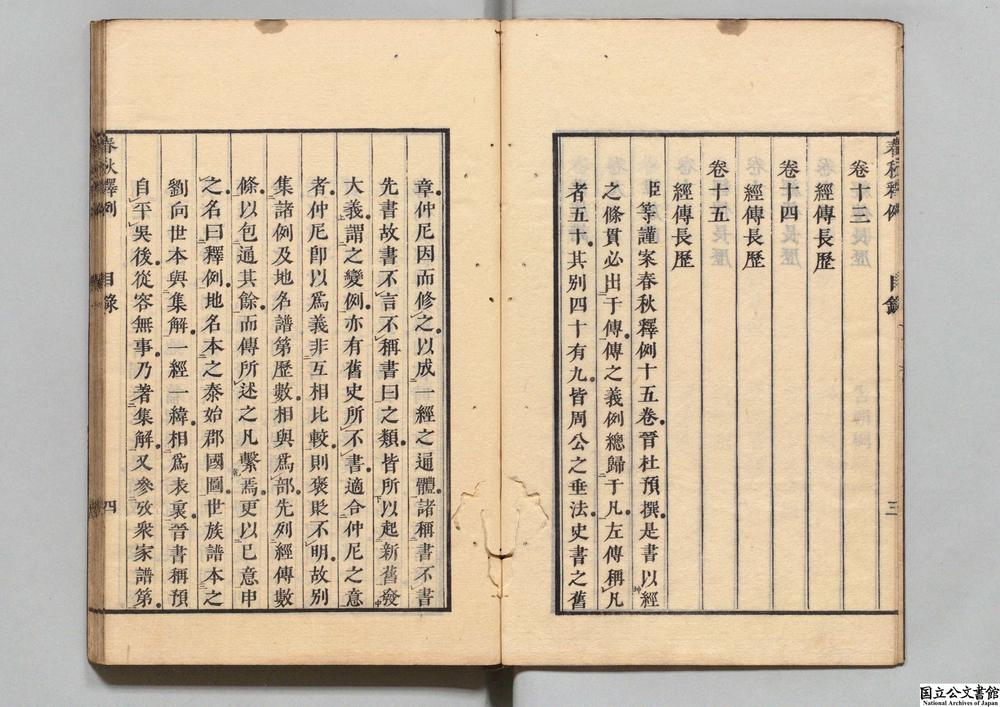 春秋釋例 目錄 三
卷十三
經傳長歷
卷十四
經傳長歷
卷十五
經傳長歷
臣等謹案春秋釋例十五卷晉杜預撰是書以經
之條貫必出于傳傳之義例總歸于凡左傳稱凡
者五十其別四十有九皆周公之垂法史書之舊
章仲尼因而修之以成一經之通體諸稱書不書
先書故書不言不稱書曰之類皆所以起新舊發
大義謂之變例亦有舊史所不書適合仲尼之意
者仲尼卽以爲義非互相比較則褒貶不明故別
集諸例及地名譜第歷數相與爲部先列經傳數
條以包通其餘而傳所述之凡繫焉更以已意申
之名曰釋例地名本之泰始郡國圖世族譜本之
劉向世本與集解一經一緯相爲表裏晉書稱預
自平吳後從容無事乃著集解又參攷衆家譜第
春秋釋例 目錄 四
国立公文書館
National Archives of Japan